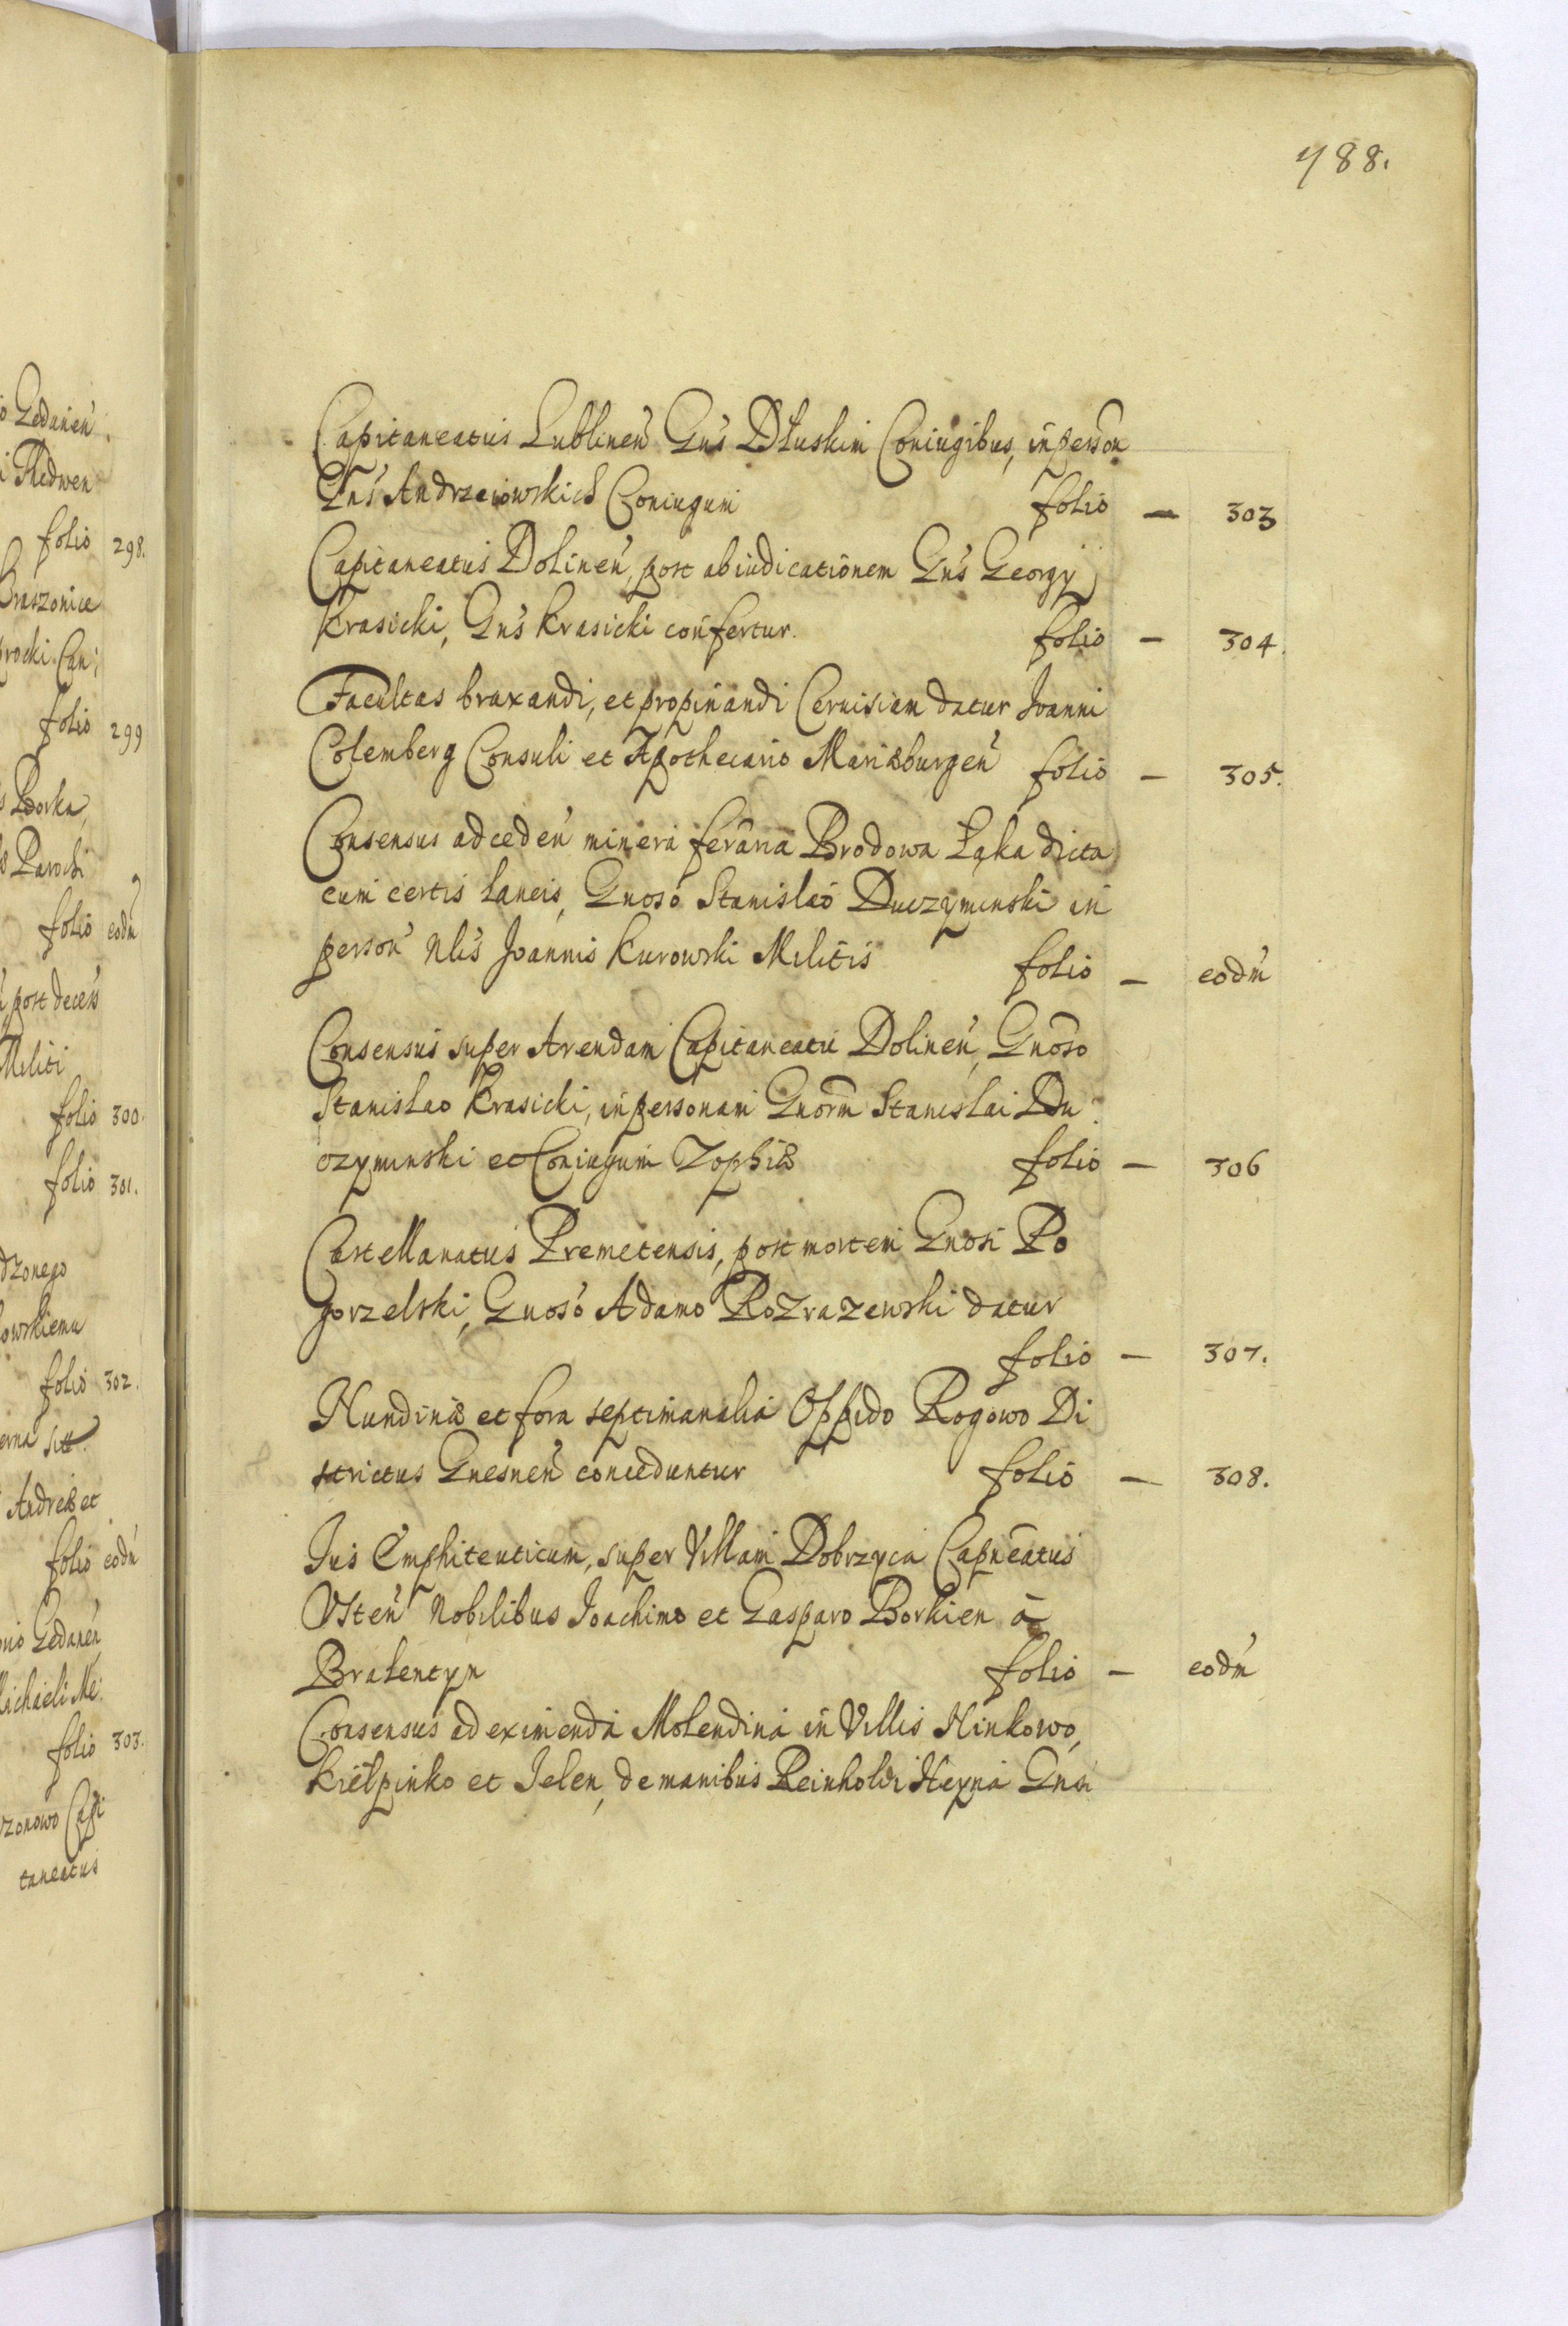 488.
Capitaneatus Lublineń Gns Dłuskim Coniugibus, in person
Gns Andrzeiowskich Coniugum folio — 303
Capitaneatus Dolineń, post abiudicationem Gns Georgy
Krasicki, Gns Krasicki confertur. folio — 304.
Facultas braxandi, et propinandi Ceruisiam datur Joanni
Colemberg Consuli et Apothecario Mariæburgeń folio — 305.
Consensus ad cedeń minera ferraria Brodowa Łąka dicta
cum certis laneis, Gnoso Stanislao Duczyminski in
person Nlis Joannis Kurowski Militis folio — eodm
Consensus super Arendam Capitaneatu Dolineń, Gnoso
Stanislao Krasicki, in personam Gnorm Stanislai Du
czyminski et Coniugum Zophiæ folio — 306
Castellanatus Premetensis, post mortem Gnosi Po
gorzelski, Gnoso Adamo Rozrazewski datur
folio — 307.
Nundinæ et fora septimanalia Oppido Rogowo Di
strictus Gnesneń conceduntur folio — 308.
Jus Emphiteuticum, super Villam Dobrzyca Capneatus
Usteń Nobilibus Joachimo et Gasparo Borkien a
Bralentyn folio — eodm
Consensus ad eximenda Molendina in Villis Ninkowo,
Kiełpinko et Jelen, de manibus Reinholdi Heyna Gnsi
o Gedaneń
i Medwen
folio 298.
Braszonice
procki Can:
folio 299
Borka,
Parochi
folio eodm
post decess
Militi
folio 300.
folio 301.
dzonego
owskiemu
folio 302.
erna sitt.
Andreæ et
folio eodm
Gedaneń
Michaeli Me:
folio 303.
zonowo Capi
taneatus